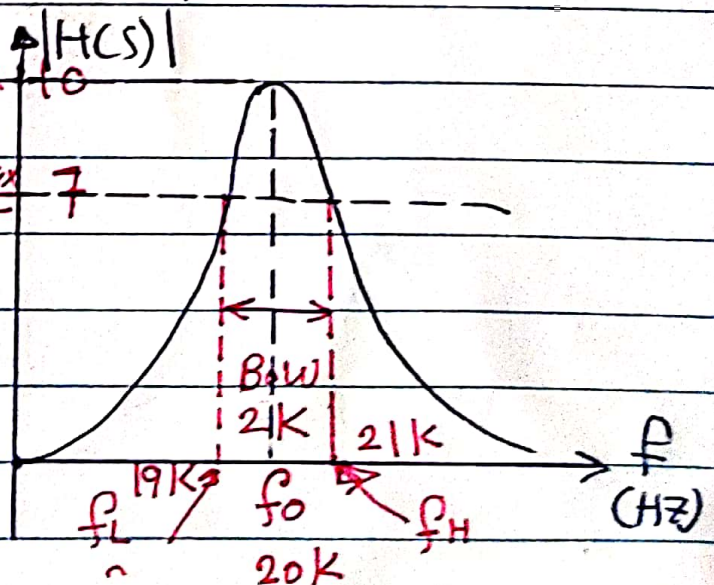 |H(S)|
10
7
B.W
2K
21K
19K
f
(HZ)
fL
fO
fH
20K